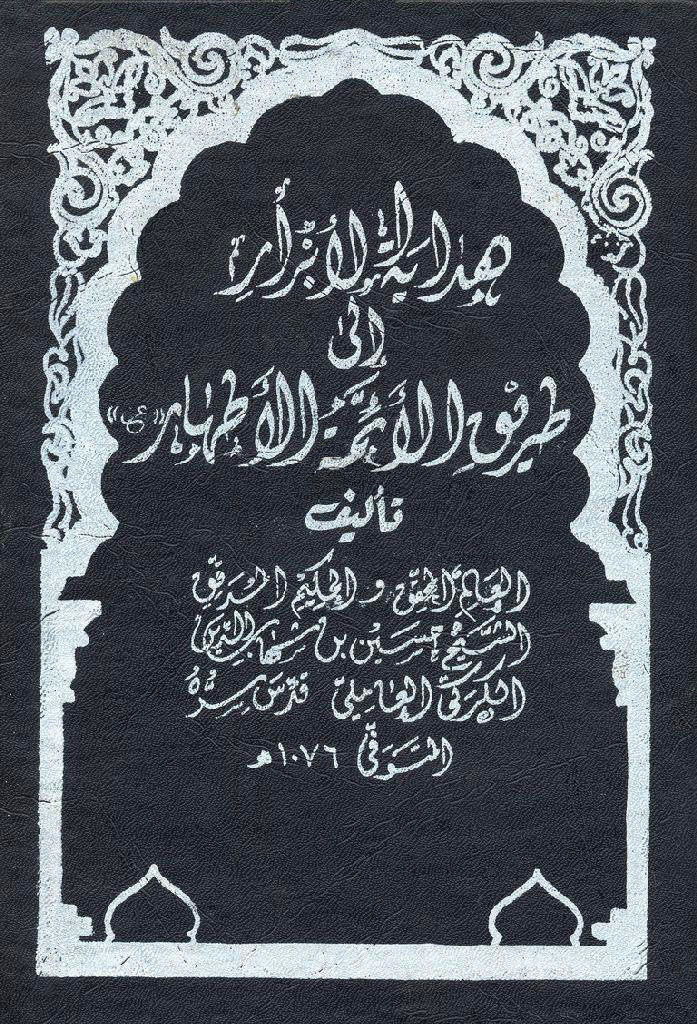 هداية الأبرار
إلى
طريق الأئمة الأطهار «ع»
تأليف
العالم المحقق و الحكيم المدقق
الشيخ حسين بن شهاب الدين
الكركي العاملي قدس سره
المتوفى ١٠٧٦ هـ